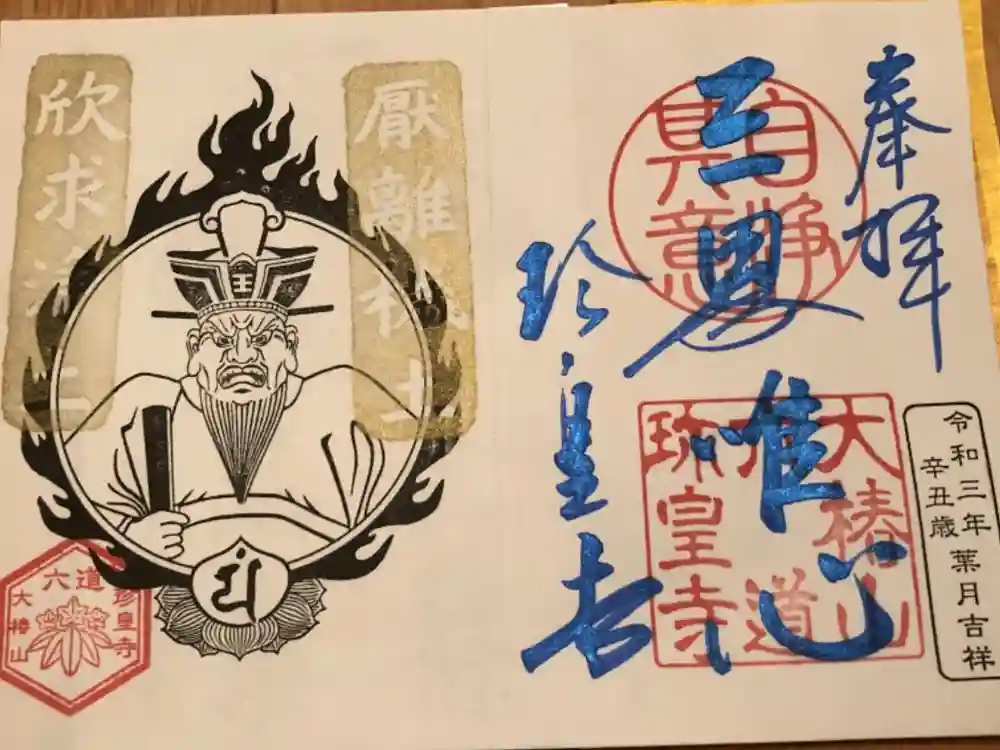 奉拝
三界唯心
珍皇寺
自浄
其意
大椿山
六道
珎皇寺
令和三年 葉月吉祥
辛丑歳
厭離穢土
欣求浄土
王
六道
珍皇寺
大椿山